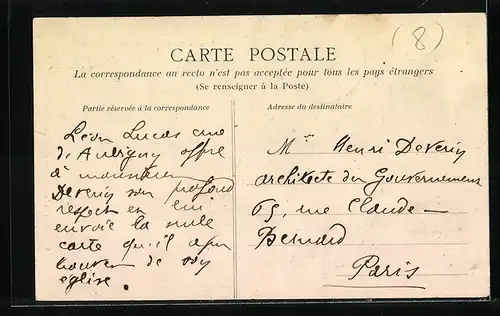 (8)
CARTE POSTALE
La correspondance au recto n'est pas acceptée pour tous les pays étrangers
(Se renseigner à la Poste)
Partie réservée à la correspondance
Adresse du destinataire
Léon Lucas curé
d'Aubigny offre
à monsieur
Deverin son profond
respect en lui
envoie la seule
carte qu'il a pu
trouver de son
église.
Mr Henri Deverin
architecte du Gouvernement
65, rue Claude-
Bernard
Paris